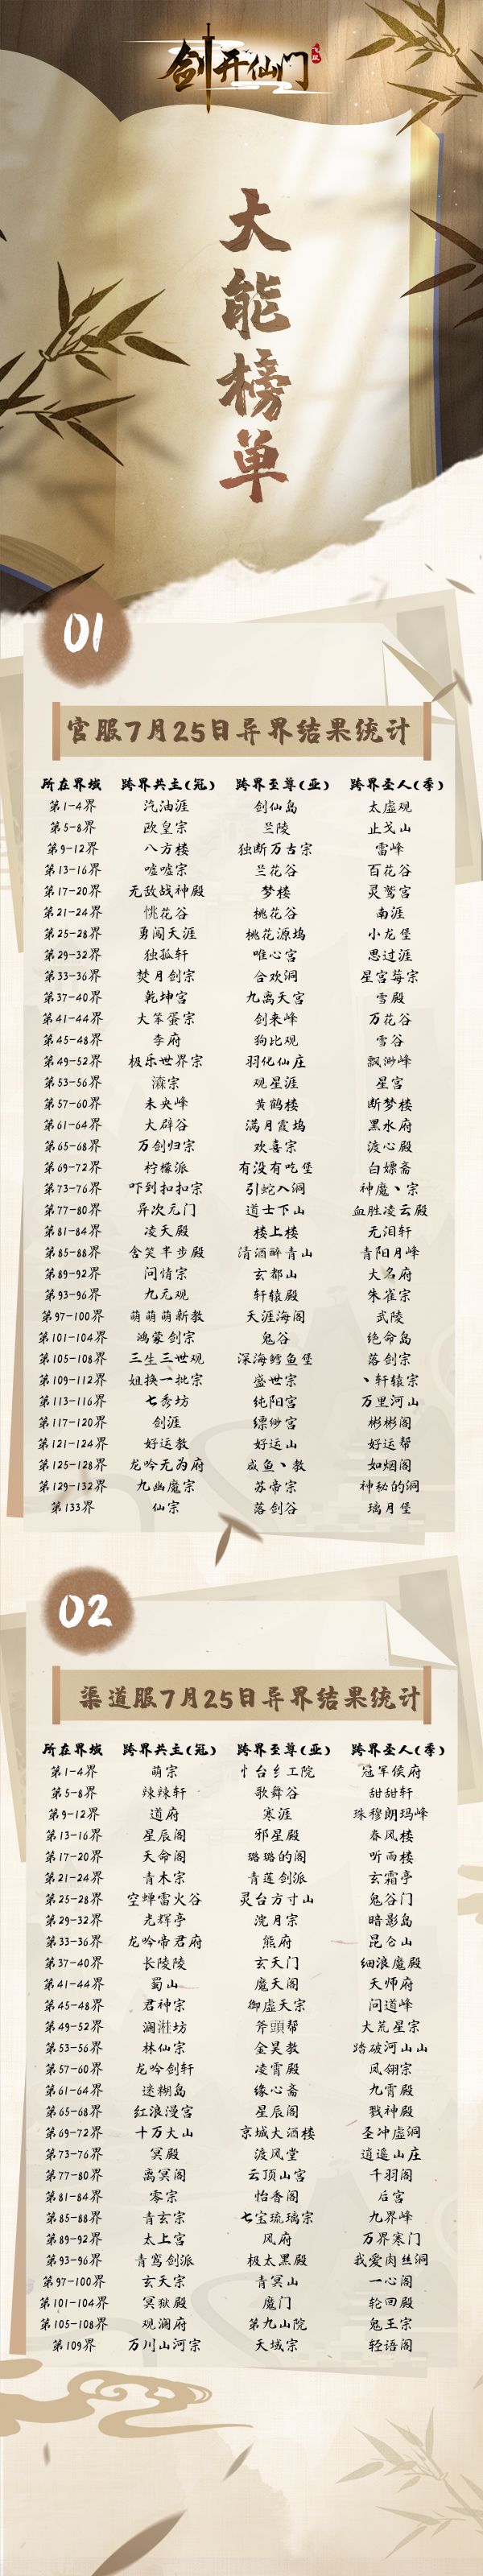 剑开仙门
飞跃
大能榜单
01
官服7月25日异界结果统计
所在界域 跨界共主(冠) 跨界至尊(亚) 跨界圣人(季)
第1-4界 汽油涯 剑仙岛 太虚观
第5-8界 政皇宗 兰陵 止戈山
第9-12界 八方楼 独断万古宗 雷峰
第13-16界 嘘嘘宗 兰花谷 百花谷
第17-20界 无敌战神殿 梦楼 灵鹫宫
第21-24界 恌花谷 桃花谷 南涯
第25-28界 勇闯天涯 桃花源坞 小龙堡
第29-32界 独孤轩 唯心宫 思过涯
第33-36界 焚月剑宗 合欢洞 星宫莓宗
第37-40界 乾坤宫 九离天宫 雪殿
第41-44界 大笨蛋宗 剑来峰 万花谷
第45-48界 李府 狗比观 雪谷
第49-52界 极乐世界宗 羽化仙庄 飘渺峰
第53-56界 宗 观星涯 星宫
第57-60界 未央峰 黄鹤楼 断梦楼
第61-64界 大辟谷 满月霞坞 黑水府
第65-68界 万剑归宗 欢喜宗 渡心殿
第69-72界 柠檬派 有没有吃堡 白嫖斋
第73-76界 吓到扣扣宗 引蛇入洞 神魔丶宗
第77-80界 异次元门 道士下山 血胜凌云殿
第81-84界 凌天殿 楼上楼 无泪轩
第85-88界 含笑半步殿 清酒醉青山 青阳月峰
第89-92界 问情宗 玄都山 大名府
第93-96界 九元观 轩辕殿 朱雀宗
第97-100界 萌萌萌新教 天涯海阁 武陵
第101-104界 鸿蒙剑宗 鬼谷 绝命岛
第105-108界 三生三世观 深海鳕鱼堡 落剑宗
第109-112界 姐换一批宗 盛世宗 丶轩辕宗
第113-116界 七秀坊 纯阳宫 万里河山
第117-120界 剑涯 缥缈宫 彬彬阁
第121-124界 好运教 好运山 好运帮
第125-128界 龙吟无为府 咸鱼丶教 如烟阁
第129-132界 九幽魔宗 苏帝宗 神秘的洞
第133界 仙宗 落剑谷 璃月堡
02
渠道服7月25日异界结果统计
所在界域 跨界共主(冠) 跨界至尊(亚) 跨界圣人(季)
第1-4界 萌宗 忄台纟工院 冠军侯府
第5-8界 辣辣轩 歌舞谷 甜甜轩
第9-12界 道府 寒涯 珠穆朗玛峰
第13-16界 星辰阁 邪星殿 春风楼
第17-20界 天命阁 璐璐的阁 听雨楼
第21-24界 青木宗 青莲剑派 玄霜亭
第25-28界 空蝉雷火谷 灵台方寸山 鬼谷门
第29-32界 光辉亭 浣月宗 暗影岛
第33-36界 龙吟帝君府 熊府 昆仑山
第37-40界 长陵陵 玄天门 细浪魔殿
第41-44界 蜀山 魔天阁 天师府
第45-48界 君神宗 御虚天宗 问道峰
第49-52界 澜溎坊 斧頭帮 大荒星宗
第53-56界 林仙宗 金昊教 踏破河山山
第57-60界 龙吟剑轩 凌霄殿 凤翎宗
第61-64界 迷糊岛 缘心斋 九霄殿
第65-68界 红浪漫宫 星辰阁 戮神殿
第69-72界 十万大山 京城大酒楼 圣冲虚洞
第73-76界 冥殿 渡风堂 逍遥山庄
第77-80界 离冥阁 云顶山宫 千羽阁
第81-84界 零宗 怡香阁 后宫
第85-88界 青玄宗 七宝琉璃宗 九界峰
第89-92界 太上宫 风府 万界寒门
第93-96界 青鸾剑派 极太黑殿 我爱肉丝洞
第97-100界 玄天宗 青冥山 一心阁
第101-104界 冥狱殿 魔门 轮回殿
第105-108界 观澜府 第九山院 鬼王宗
第109界 万川山河宗 天域宗 轻语阁